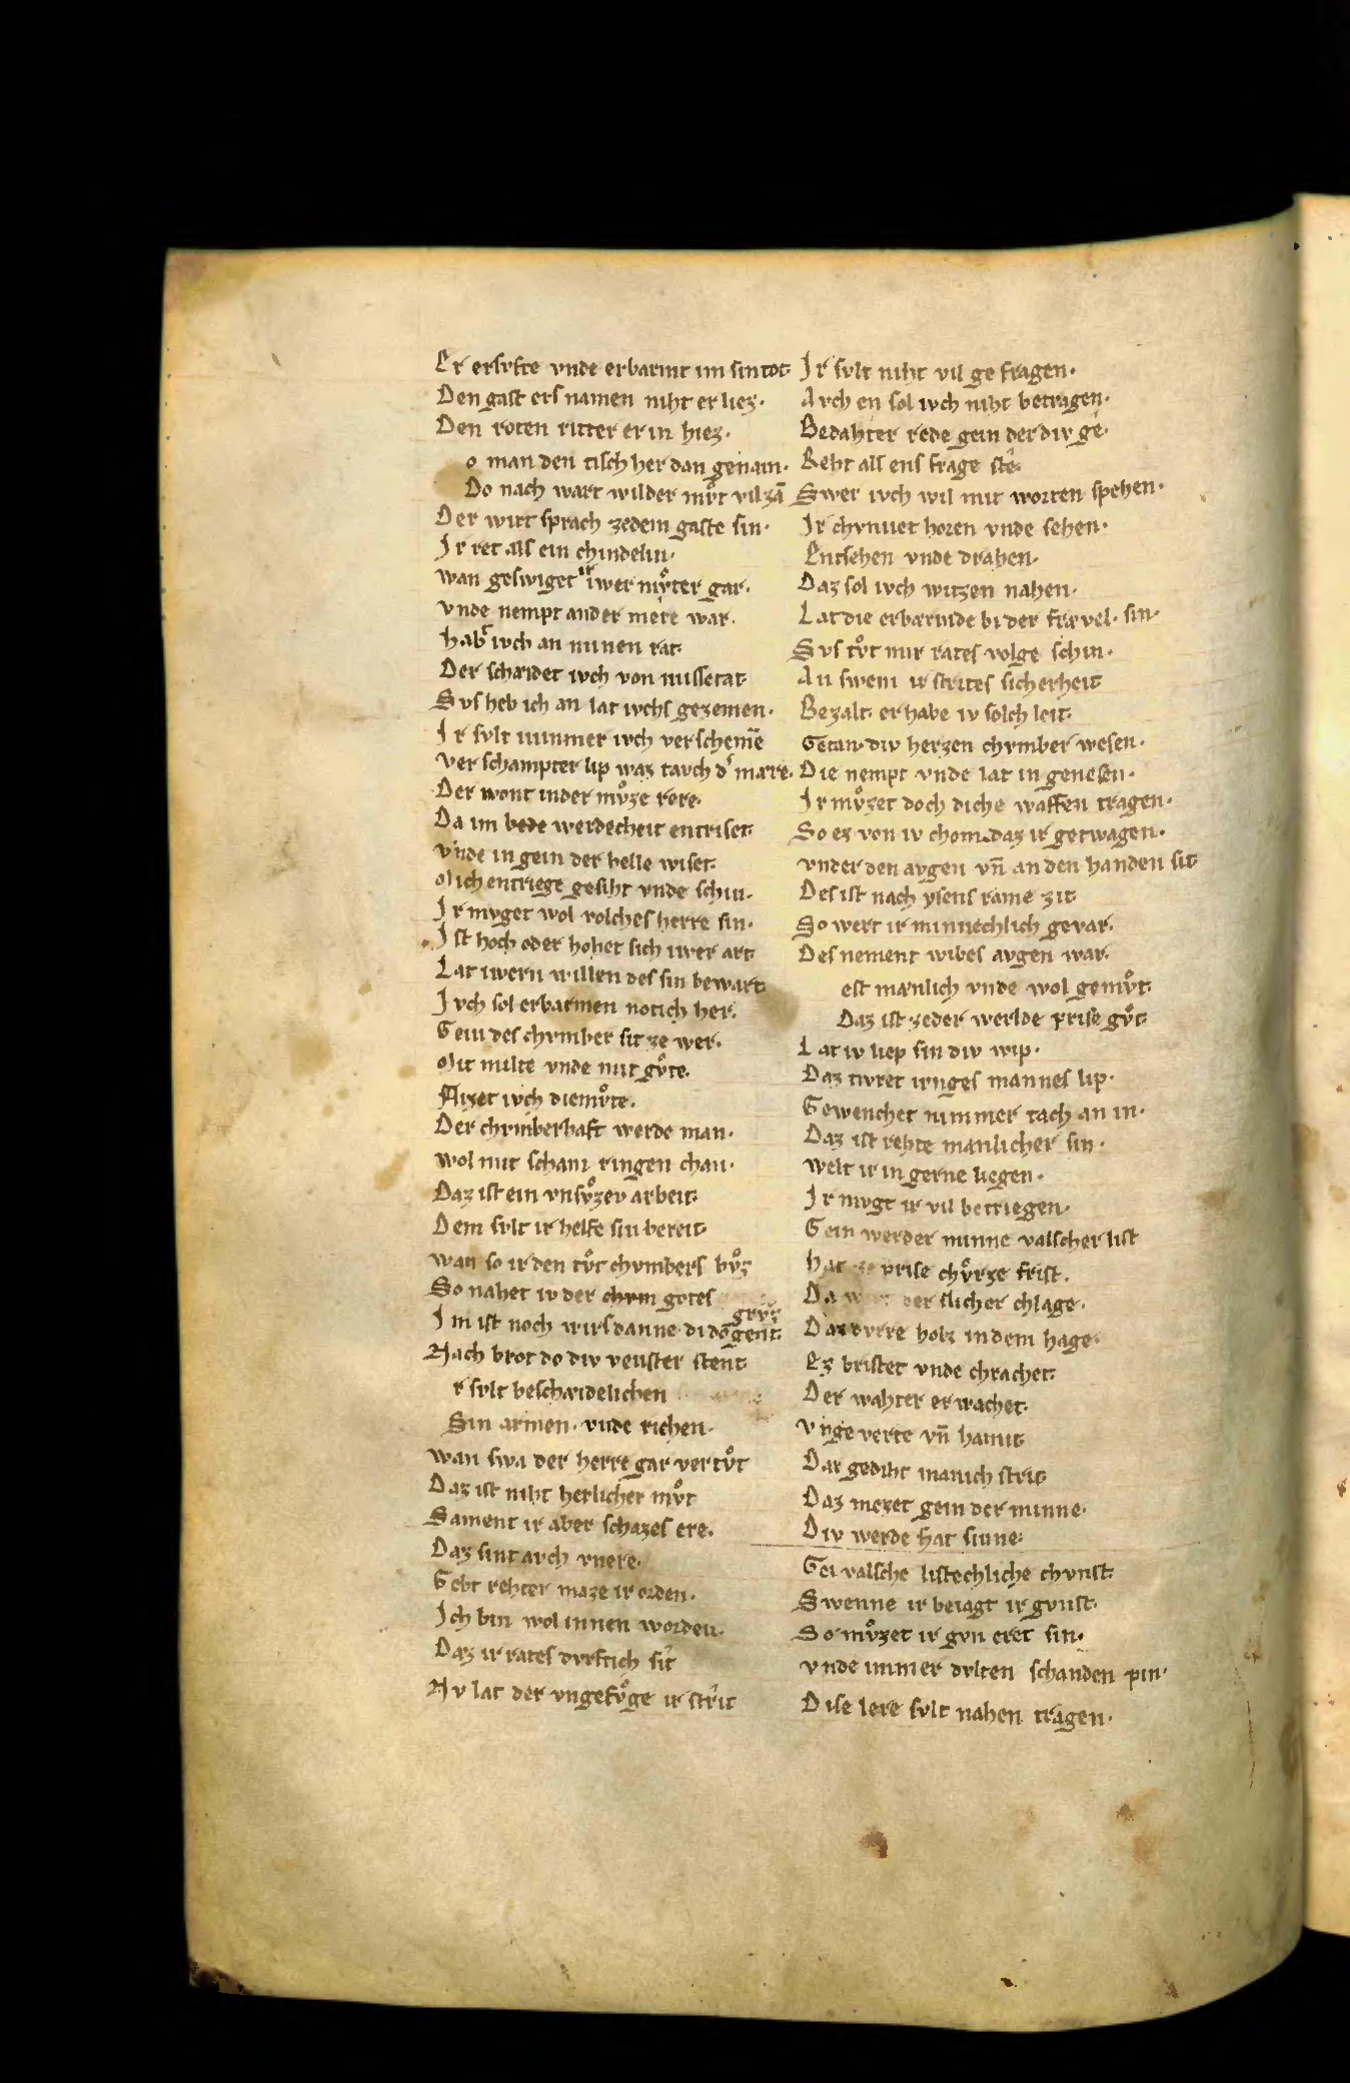 Er ersvfte vnde erbarmt im sin tot·
Den gast ers namen niht er liez·
Den roten ritter er in hiez·
o man den tisch her dan genam·
Do nach wart wilder mvͦt vil zā
Der wirt sprach zedem gaste sin·
Ir ret als ein chindelin·
wan geswiget ir iwer mvͦter gar·
vnde nempt ander mere war·
habt ivch an minen rat·
Der schæidet ivch von missetat·
Svs heb ich an lat ivchs gezemen·
Ir svlt nimmer ivch verschemē
ver schampter lip waz tavch dˢ mære·
Der wont inder mvͦze rere·
Da im bede werdecheit entriset·
vnde in gein der helle wiset·
Mich entriege gesiht vnde schin·
Ir mvget wol volches herre sin·
Ist hoch oder hohet sich iwer art·
Lat iwern willen des sin bewart·
Ivch sol erbarmen notich her·
Gein des chvmber sit ze wer·
Mit milte vnde mit gvͦte·
Flizet ivch diemvͦte·
Der chvmberhaft werde man·
wol mit scham ringen chan·
Daz ist ein vnsvͦzev arbeit·
Dem svlt ir helfe sin bereit·
wan so ir den tvͦt chvmbers bvͦz
So nahet iv der chvm gotes grvͦz
Im ist noch wirs danne di dō gent·
Nach brot do div venster stent·
r svlt beschæidelichen
Sin armen· vnde richen·
wan swa der herre gar vertvͦt
Daz ist niht herlicher mvͦt
Sament ir aber schazes ere·
Daz sint avch vnere·
Gebt rehter maze ir orden·
Ich bin wol innen worden·
Daz ir rates dvrftich sit
Nv lat der vngefvͦge ir strit
Ir svlt niht vil ge fragen·
Avch en sol ivch niht betragen·
Bedahter rede gein der div ge·
Reht als ens frage ste·
Swer ivch wil mit worten spehen·
Ir chvnnet horen vnde sehen·
Entsehen vnde drahen·
Daz sol ivch witzen nahen·
Lat die erbærmde bi der frævel· sin·
Svs tvͦt mir rates volge schin·
An swem ir strites sicherheit
Bezalt· er habe iv solch leit·
Getan· div herzen chvmber wesen·
Die nempt vnde lat in genesen·
Ir mvͦzet doch diche waffen tragen·
So ez von iv chom· daz ir getwagen·
vnder den avgen vn̄ an den handen sit
Des ist nach ysens rame zit
So wert ir minnechlich gevar·
Des nement wibes avgen war·
est mænlich vnde wol gemvͦt·
Daz ist zeder werlde prise gvͦt·
Lat iv liep sin div wip·
Daz tivret ivnges mannes lip·
Gewenchet nimmer tach an in·
Daz ist rehte manlicher sin·
welt ir in gerne liegen·
Ir mvgt ir vil betriegen·
Gein werder minne valscher list
hat ze prise chvͦrze frist·
Da der slicher chlage·
Daz dvrre holz in dem hage·
Ez bristet vnde chrachet·
Der wahter er wachet·
vnge verte vn̄ hamit
Dar gediht manich strit·
Daz mezet gein der minne·
Div werde hat sinne·
Gei valsche listechliche chvnst·
Swenne ir beiagt ir gvnst·
So mvͦzet ir gvn eret sin·
vnde immer dvlten schanden pin·
Dise lere svlt nahen tragen·